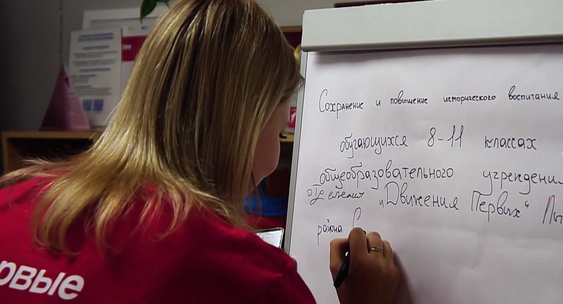 Сохранение и повышение исторического воспитания
обучающихся 8-11 классах
общеобразовательного учреждения
"Движения Первых"
района С
рвые